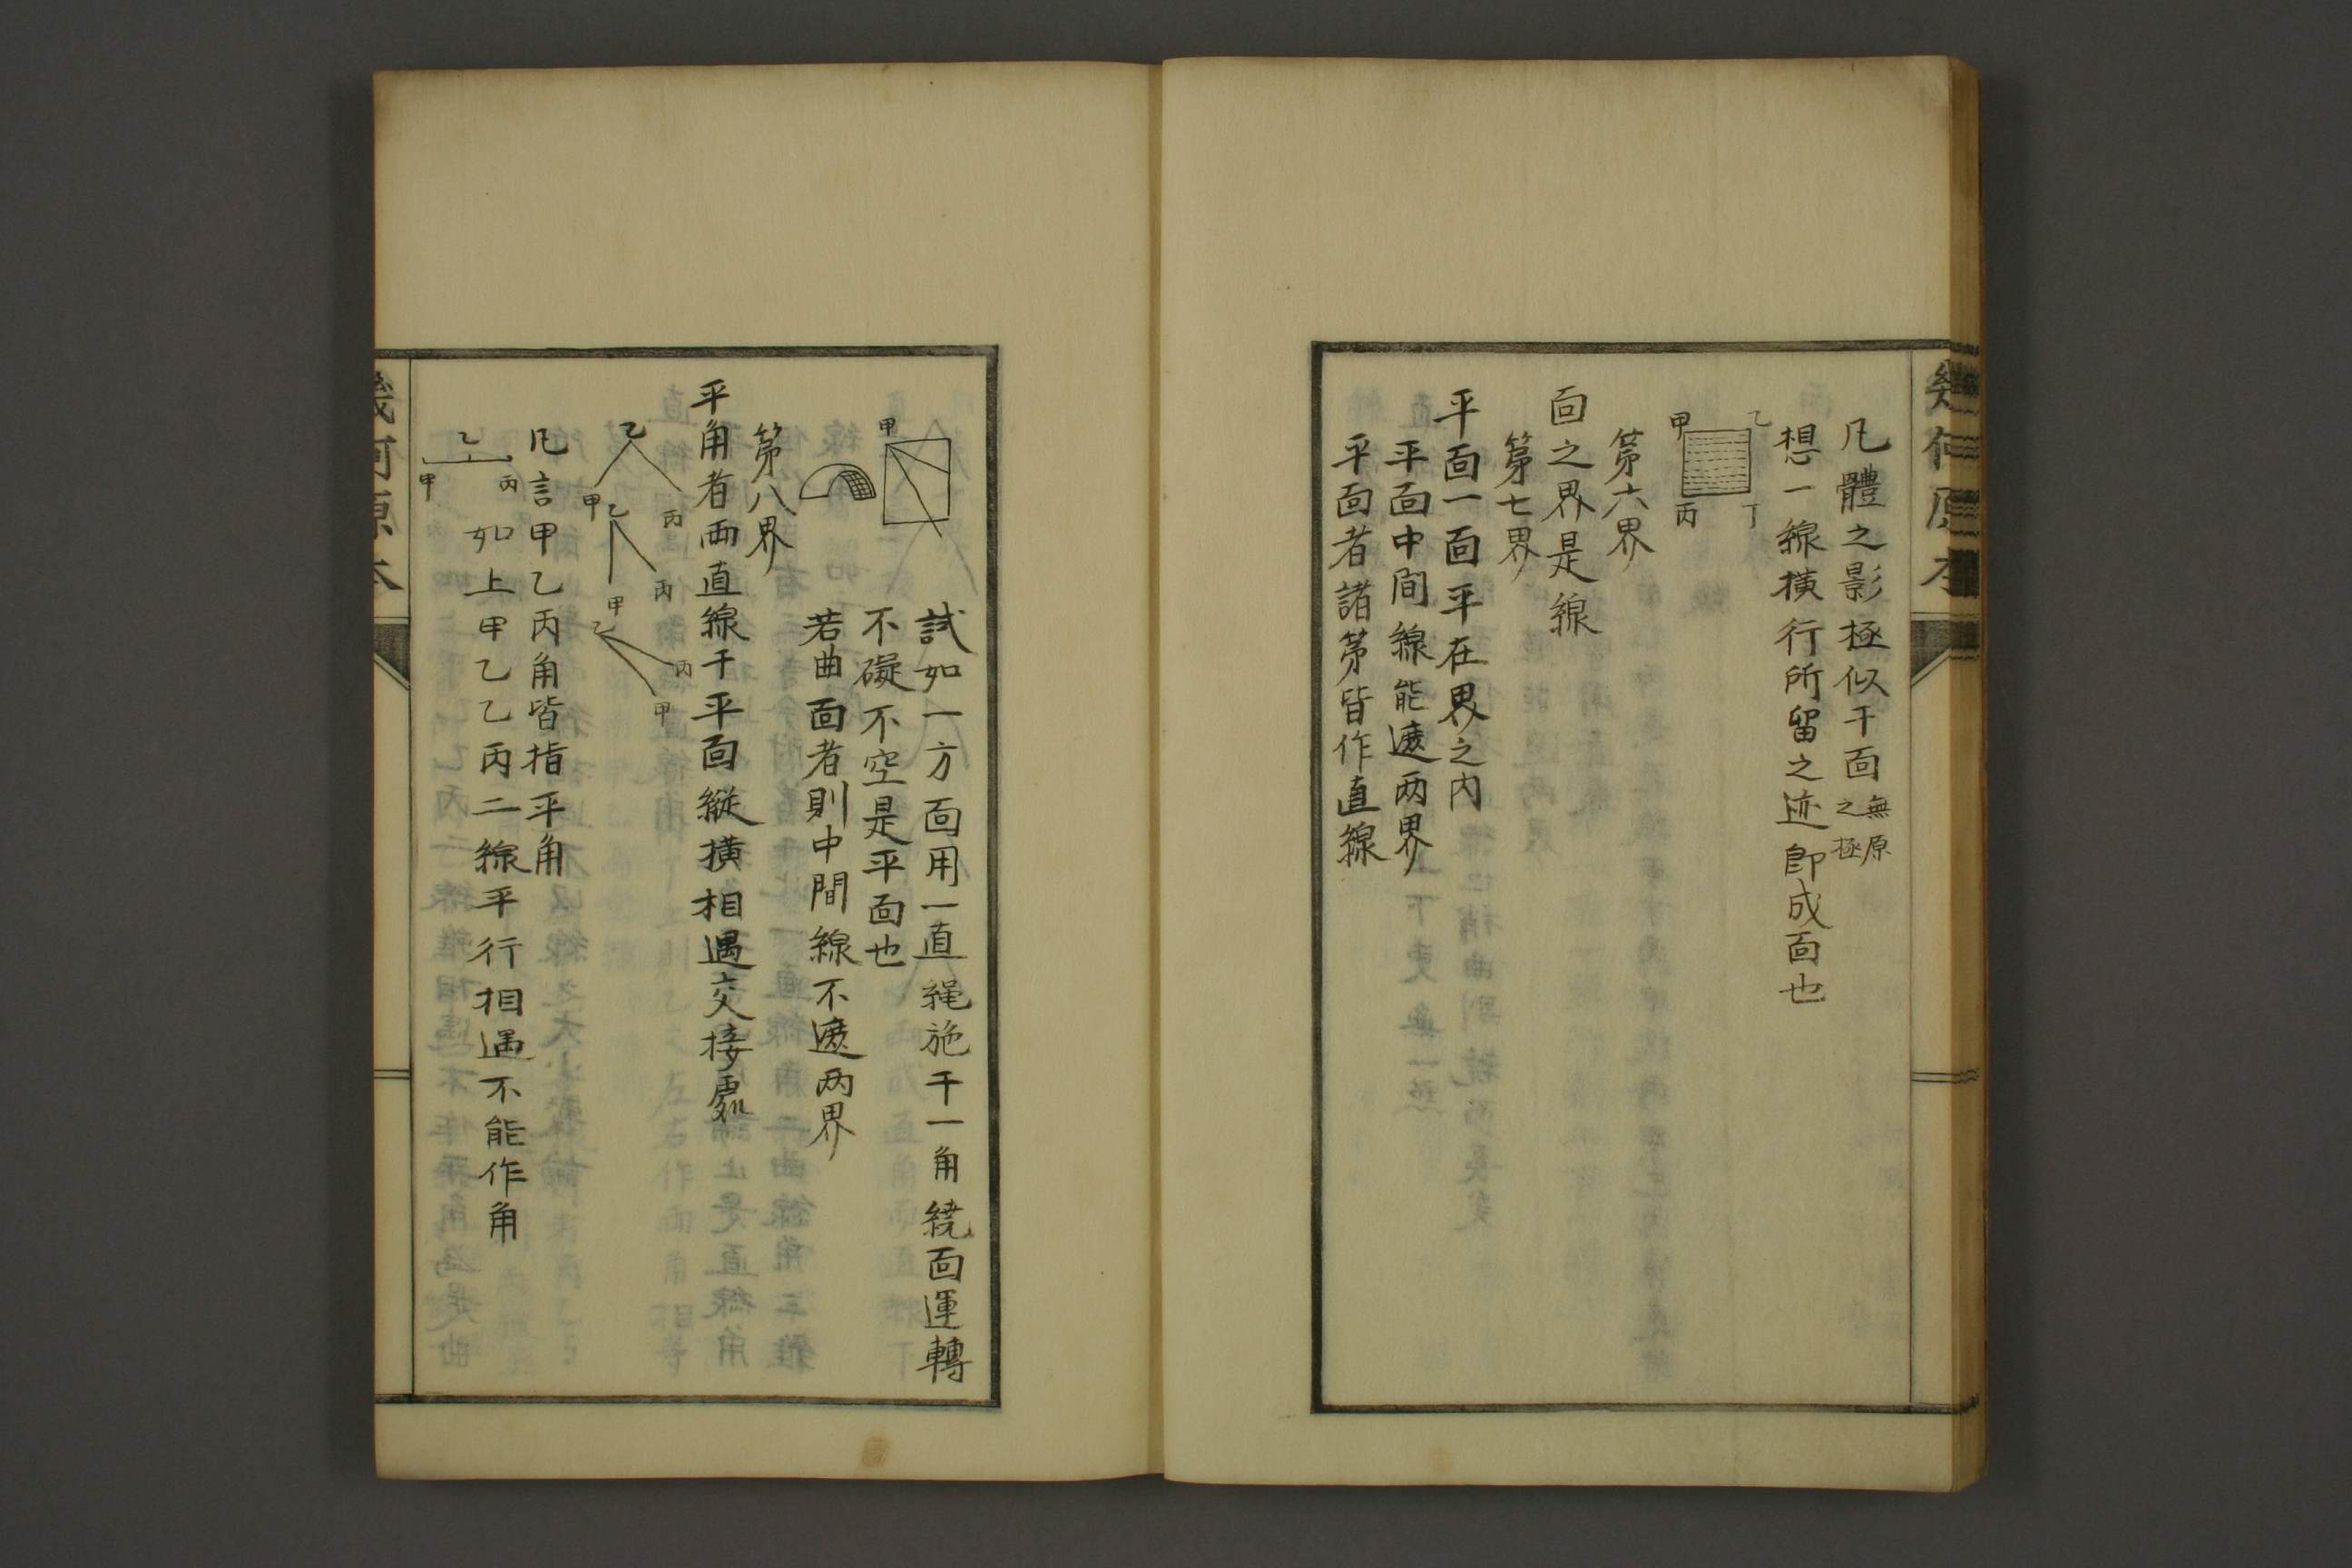 幾何原本
凡體之影極似于面無原之極
想一線橫行所留之迹即成面也
乙
甲
丙
丁
第六界
面之界是線
第七界
平面一面平在界之内
平面中間線能遮两界
平面者諸第皆作直線
甲
試如一方面用一直繩施于一角繞面運轉
不礙不空是平面也
若曲面者則中間線不遮两界
第八界
平角者兩直線于平面縱橫相遇交接處
乙
甲
丙
乙
甲
丙
乙
丙
甲
凡言甲乙丙角皆指平角
乙
甲
丙
如上甲乙乙丙二線平行相遇不能作角
幾何原本